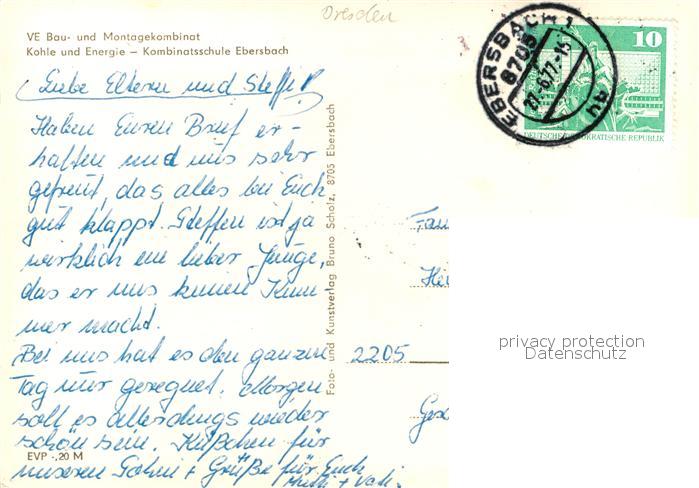 Dresden
VE Bau- und Montagekombinat
Kohle und Energie – Kombinatsschule Ebersbach
Liebe Eltern und Steffi!
Haben Euren Brief er-
halten und uns sehr
gefreut, das alles bei Euch
gut klappt. Steffen ist ja
wirklich ein lieber Junge,
das er uns keinen Kum-
mer macht.
Bei uns hat es den ganzen
Tag nur geregnet. Morgen
soll es allerdings wieder
schön sein. Küßchen für
unseren Sohni + Grüße für Euch
Mutti + Vati.
EVP -,20 M
Foto- und Kunstverlag Bruno Scholz, 8705 Ebersbach
EBERSBACH 1
8705
10
DEUTSCHE DEMOKRATISCHE REPUBLIK
Fam
Hei
2205
privacy protection
Datenschutz